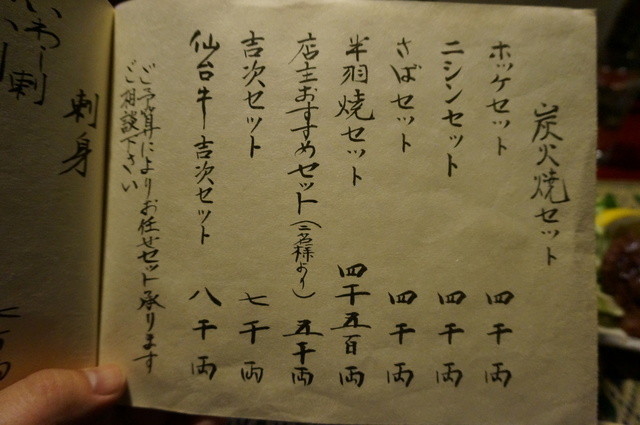 炭火焼セット
ホッケセット 四千両
ニシンセット 四千両
さばセット 四千両
半羽焼セット 四千五百両
店主おすすめセット(二名様より) 五千両
吉次セット 七千両
仙台牛吉次セット 八千両
ご予算によりお任せセット承ります
ご相談下さい
刺身